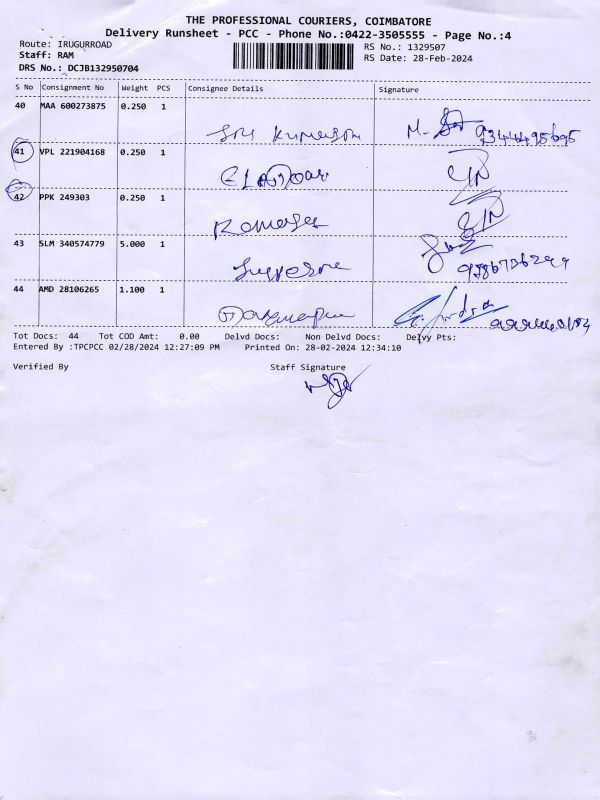 THE PROFESSIONAL COURIERS, COIMBATORE
Delivery Runsheet - PCC - Phone No.:0422-3505555 - Page No.:4
Route: IRUGURROAD
RS No.: 1329507
Staff: RAM
RS Date: 28-Feb-2024
DRS No.: DCJB132950704
S No Consignment No Weight PCS Consignee Details Signature
40 MAA 600273875 0.250 1
41 VPL 221904168 0.250 1
42 PPK 249303 0.250 1
43 SLM 340574779 5.000 1
44 AMD 28106265 1.100 1
Tot Docs: 44 Tot COD Amt: 0.00 Delvd Docs: Non Delvd Docs: Delvy Pts:
Entered By :TPCPCC 02/28/2024 12:27:09 PM Printed On: 28-02-2024 12:34:10
Verified By Staff Signature